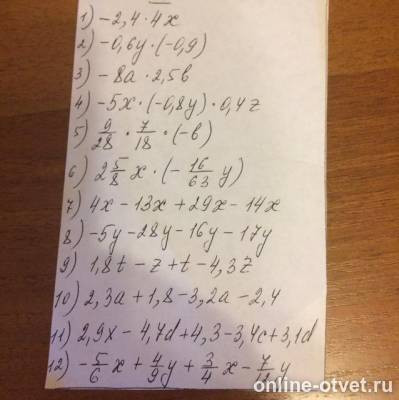 1) -2,4·4x
2) -0,6y·(-0,9)
3) -8a·2,5b
4) -5x·(-0,8y)·0,4z
5) 9/28·7/18·(-b)
6) 2 5/8 x·(-16/63 y)
7) 4x-13x+29x-14x
8) -5y-28y-16y-17y
9) 1,8t-z+t-4,3z
10) 2,3a+1,8-3,2a-2,4
11) 2,9x-4,7d+4,3-3,4c+3,1d
12) -5/6 x+4/9 y+3/4 x-7/ y
online-otvet.ru